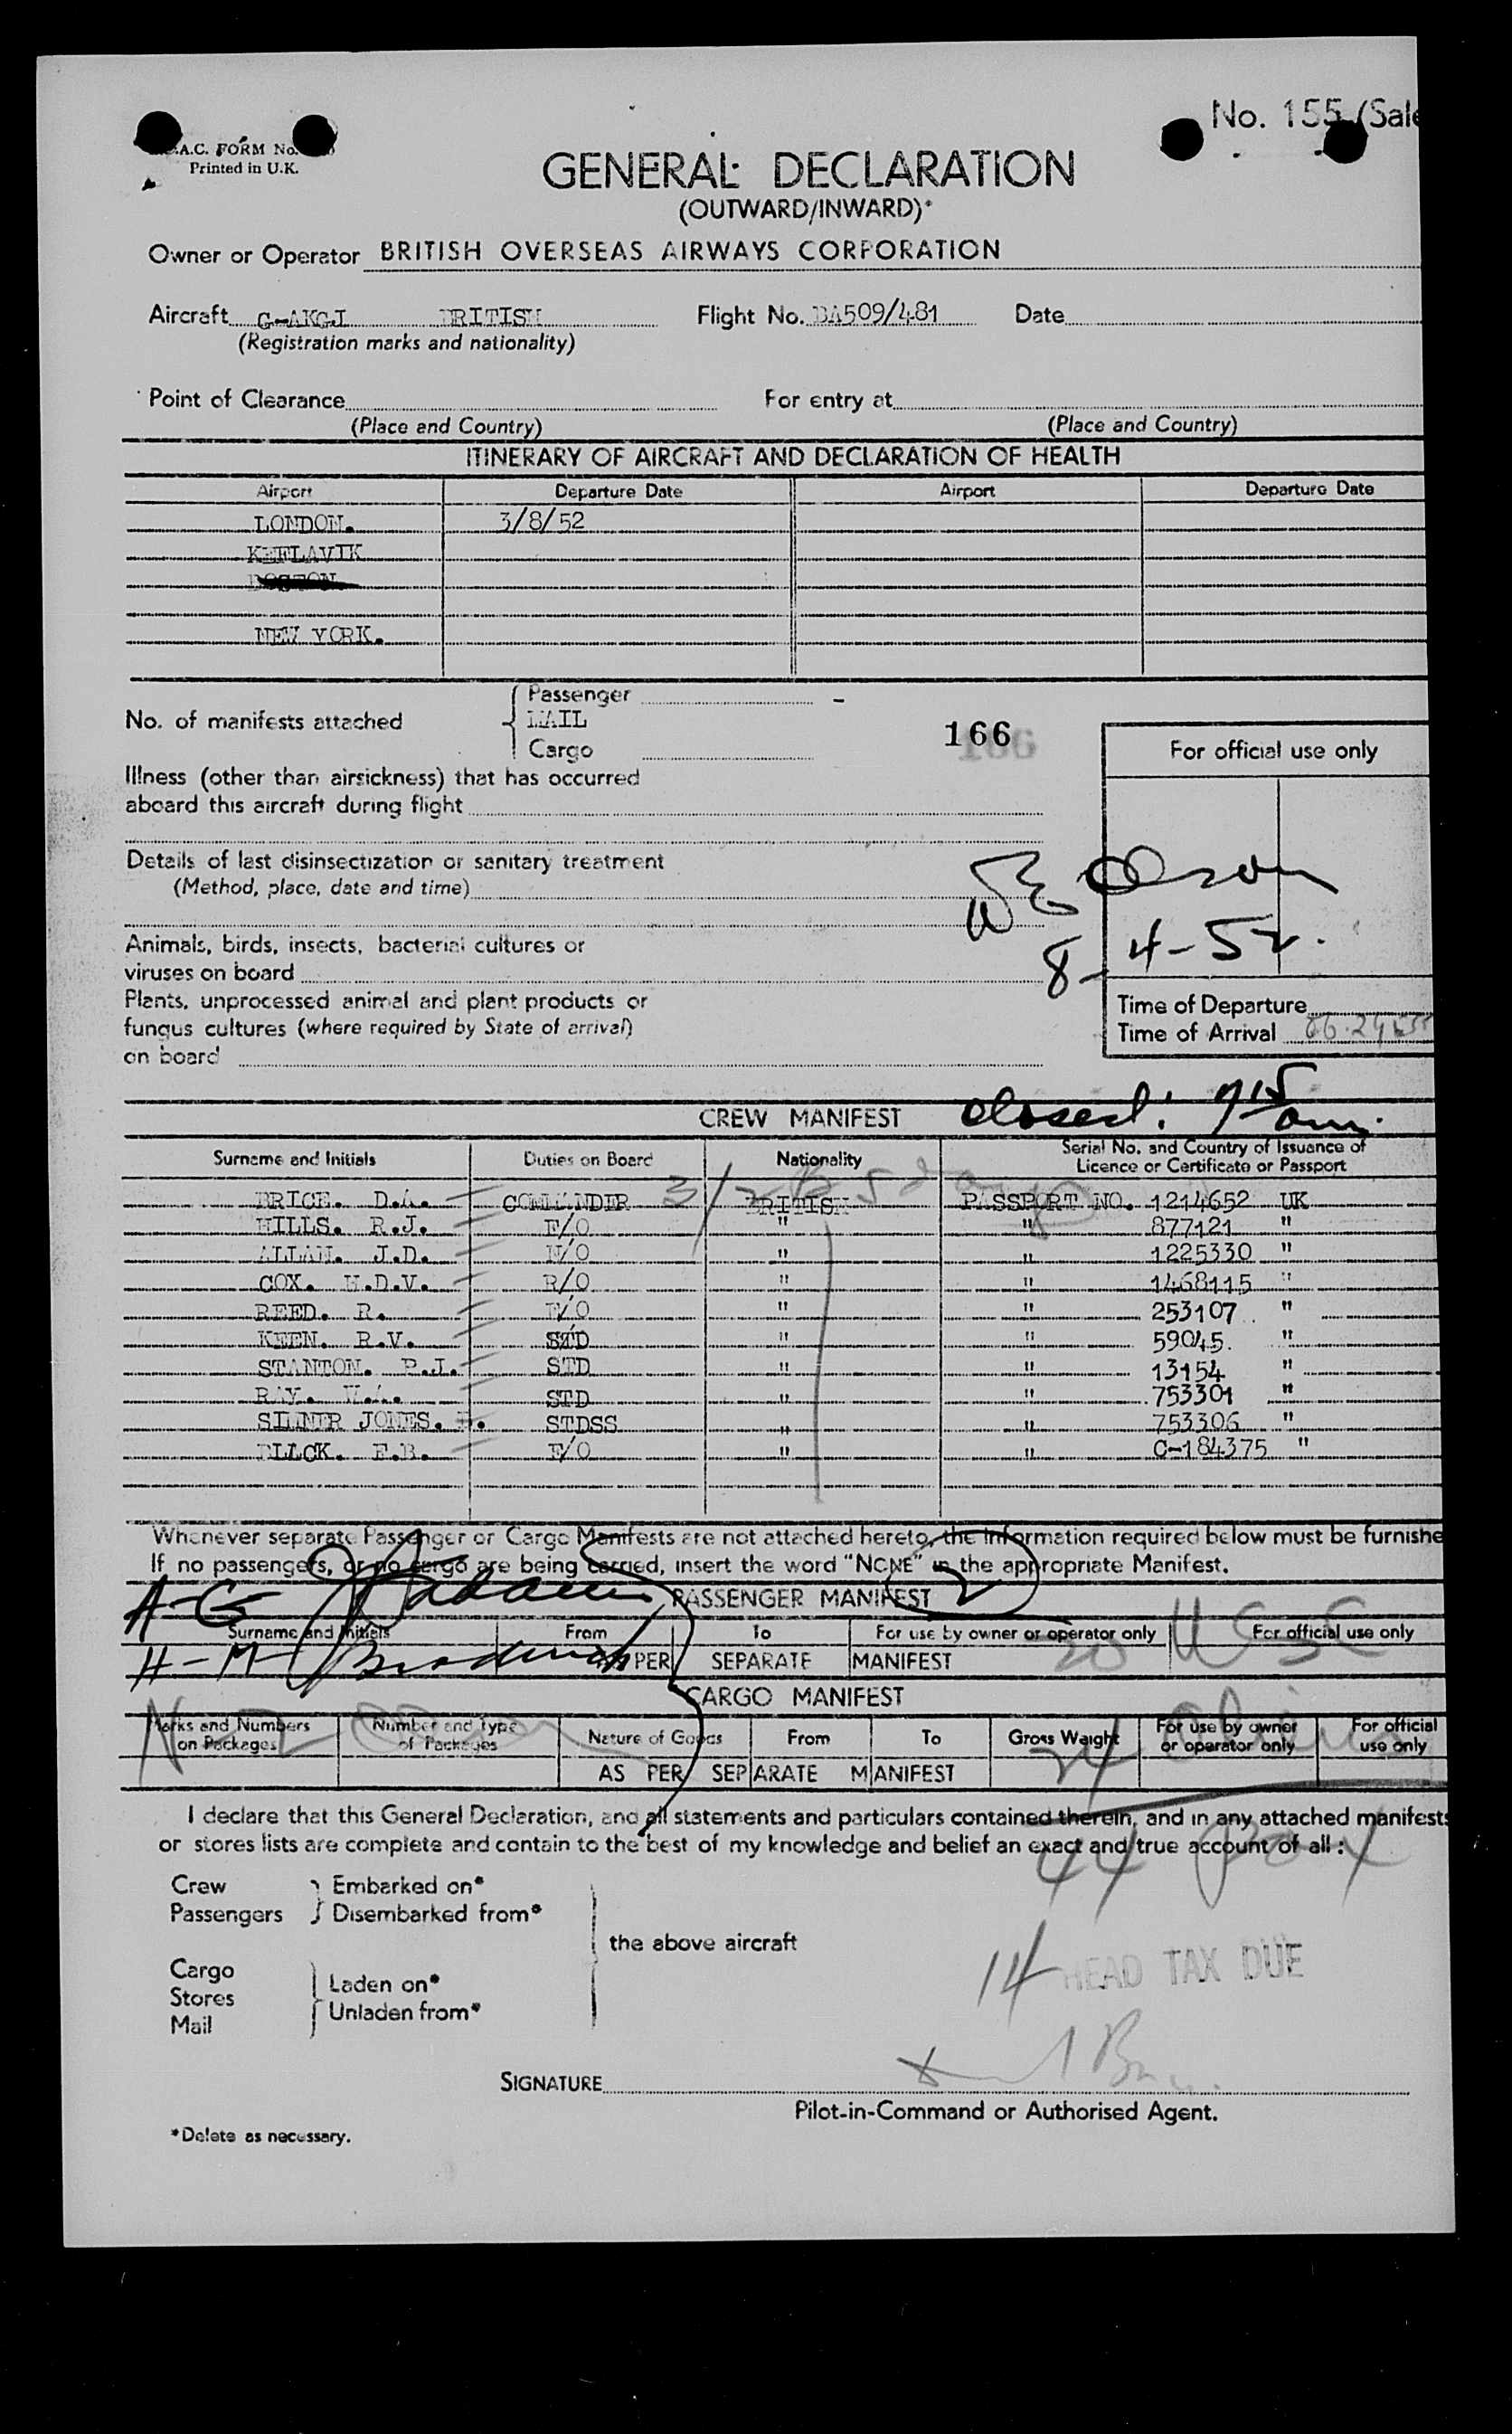 No. 155 (Sale
.A.C. FORM No.
Printed in U.K.
GENERAL DECLARATION
(OUTWARD/INWARD)*
Owner or Operator BRITISH OVERSEAS AIRWAYS CORPORATION
Aircraft G-AKGJ BRITISH Flight No. BA509/481 Date
(Registration marks and nationality)
Point of Clearance For entry at
(Place and Country) (Place and Country)
ITINERARY OF AIRCRAFT AND DECLARATION OF HEALTH
Airport Departure Date Airport Departure Date
LONDON. 3/8/52
KEFLAVIK
BOSTON
NEW YORK.
Passenger -
No. of manifests attached MAIL
Cargo
166
For official use only
Illness (other than airsickness) that has occurred
aboard this aircraft during flight
Details of last disinsectization or sanitary treatment
(Method, place, date and time)
Olson
8-4-52.
Animals, birds, insects, bacterial cultures or
viruses on board
Plants, unprocessed animal and plant products or
fungus cultures (where required by State of arrival)
on board
Time of Departure
Time of Arrival
closed: 7 15 am.
CREW MANIFEST
Surname and Initials Duties on Board Nationality Serial No. and Country of Issuance of
Licence or Certificate or Passport
BRICE. D.A. COMMANDER BRITISH PASSPORT NO. 1214652 UK
HILLS. R.J. F/O " " 877121 "
ALLAN. J.D. N/O " " 1225330 "
COX. H.D.V. R/O " " 1468115 "
REED. R. " " 253107 "
KEEN. R.V. STD " " 59045. "
STANTON. P.J. STD " " 13154 "
RAY. STD " " 753301 "
JONES. STDSS " " 753306 "
F.B. F/O " " C-184375 "
Whenever separate Passenger or Cargo Manifests are not attached hereto, the information required below must be furnishe
If no passengers, or no cargo are being carried, insert the word "NONE" in the appropriate Manifest.
A-G
PASSENGER MANIFEST
Surname and Initials From To For use by owner or operator only For official use only
H-M Broderick
PER SEPARATE MANIFEST
20 USC
CARGO MANIFEST
N-Z
Marks and Numbers on Packages Number and Type of Packages Nature of Goods From To Gross Weight For use by owner or operator only For official use only
AS PER SEPARATE MANIFEST
24 aliens
I declare that this General Declaration, and all statements and particulars contained therein, and in any attached manifests
or stores lists are complete and contain to the best of my knowledge and belief an exact and true account of all :
44 pax
Crew Embarked on*
Passengers Disembarked from*
the above aircraft
Cargo
Stores Laden on*
Mail Unladen from*
14 HEAD TAX DUE
SIGNATURE
Pilot-in-Command or Authorised Agent.
*Delete as necessary.